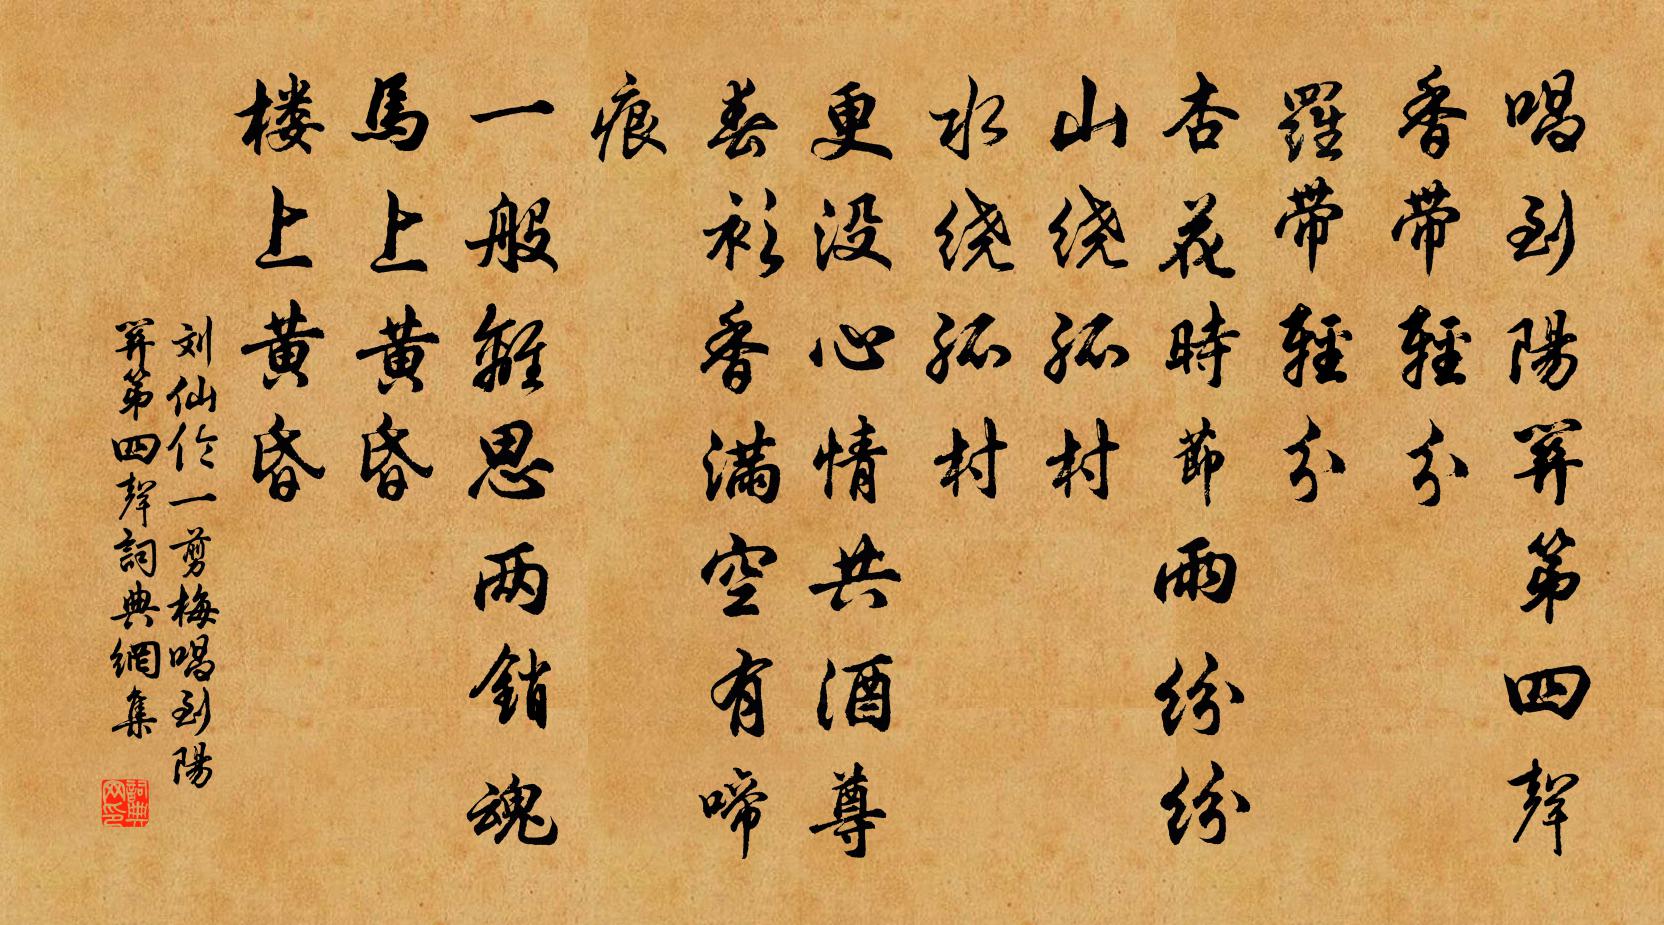 唱到陽關第四聲
香帶輕分
羅帶輕分
杏花時節雨紛紛
山繞孤村
水繞孤村
更没心情共酒尊
春衫香滿空有啼
痕
一般離思两銷魂
馬上黄昏
楼上黄昏
刘仙伦一剪梅唱到陽
關第四聲詞典網集
詞典
网印